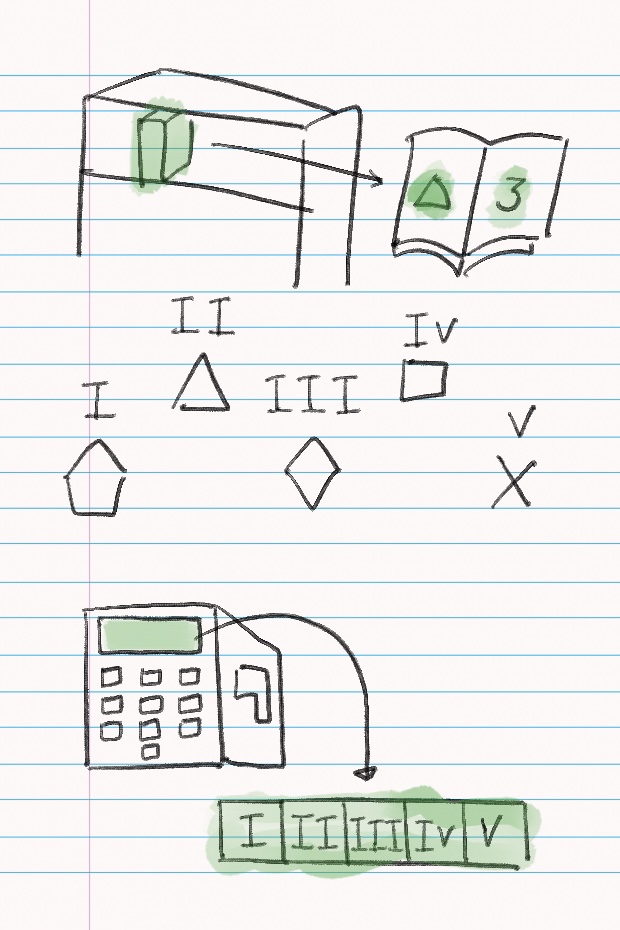 3
II
IV
I
III
V
I II III IV V